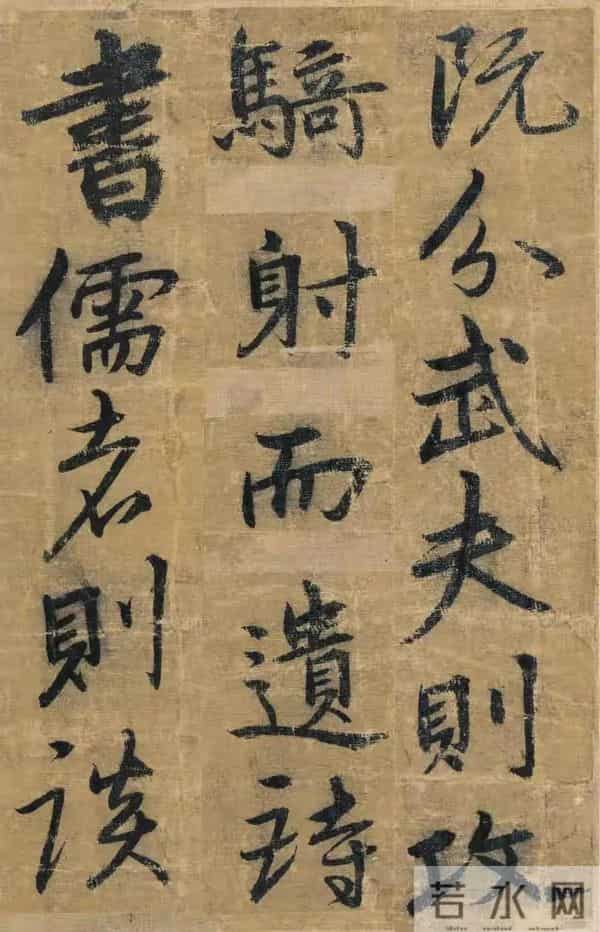 既分武夫則攻
騎射而遺詩
書儒者則談
若水网